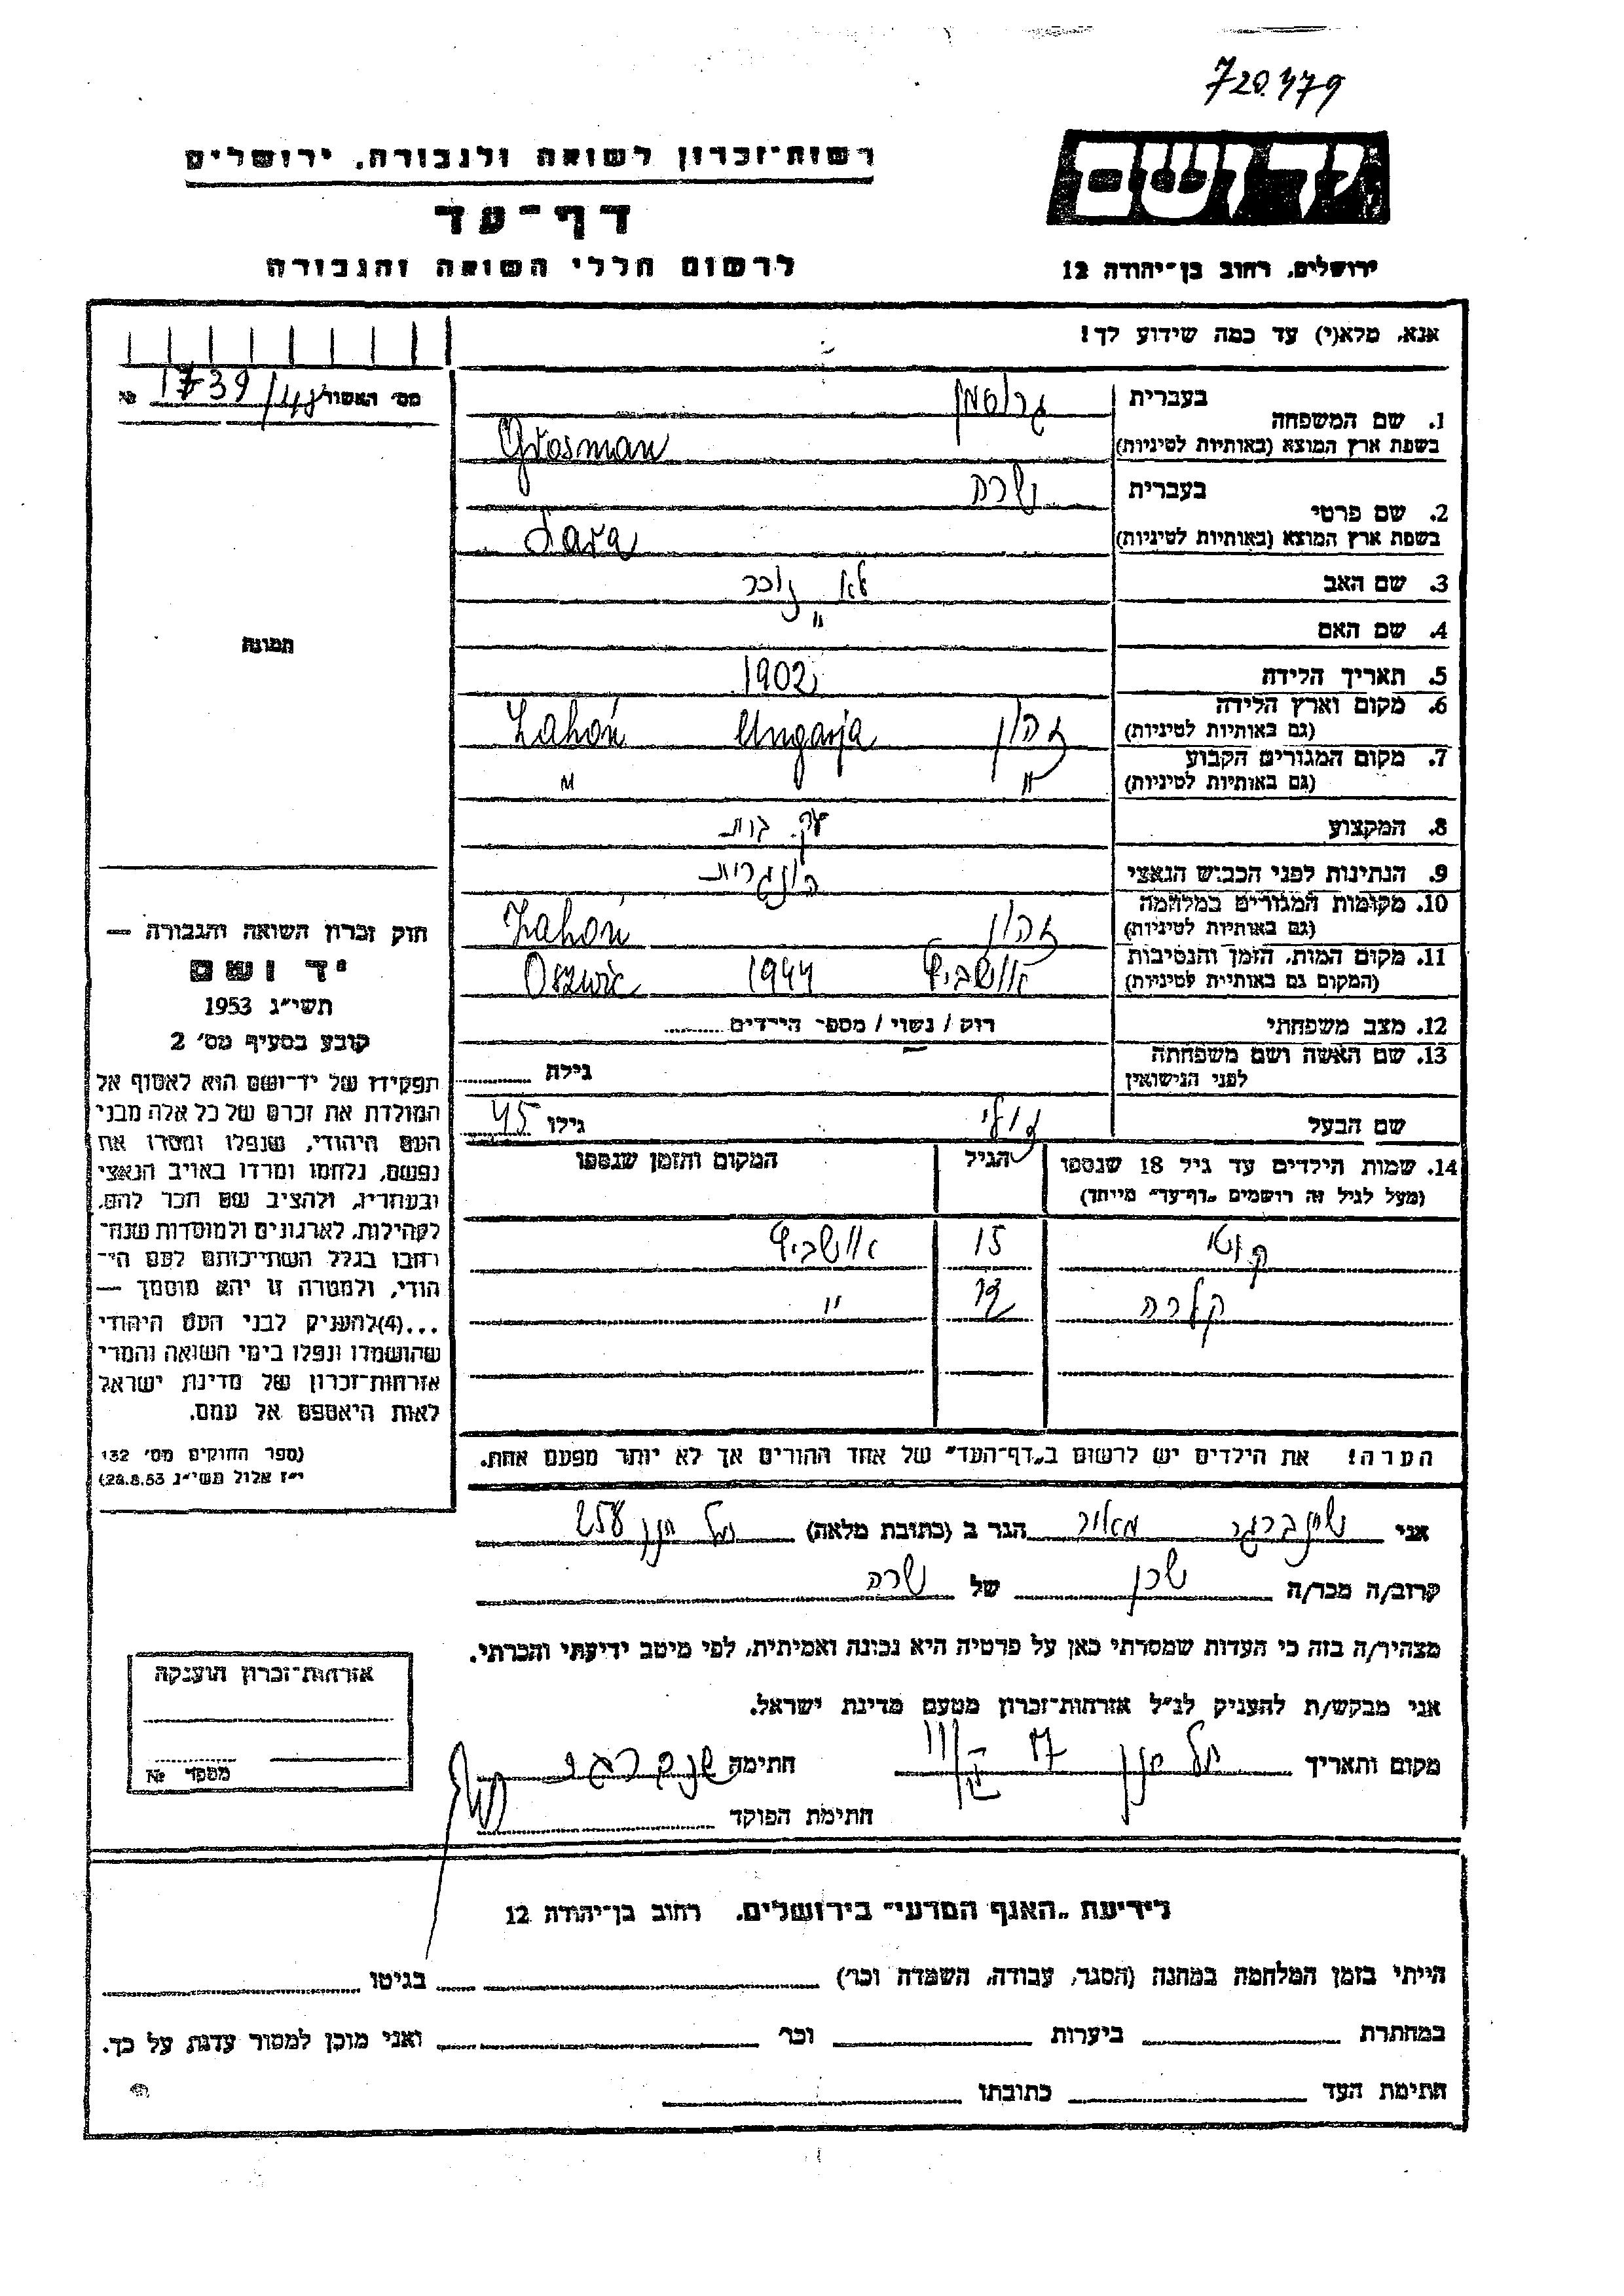 720.479
יד ושם
רשות־זכרון לשואה ולגבורה, ירושלים
דף־עד
לרשום חללי השואה והגבורה
ירושלים, רחוב בן־יהודה 12
אנא, מלא(י) עד כמה שידוע לך!
מס׳ האשור 1739/48 №
1. שם המשפחה
בעברית גרוסמן
בשפת ארץ המוצא (באותיות לטיניות) Grosman
2. שם פרטי
בעברית שרה
בשפת ארץ המוצא (באותיות לטיניות) Sara
3. שם האב לא זוכר
4. שם האם "
5. תאריך הלידה 1902
6. מקום וארץ הלידה
(גם באותיות לטיניות) זהון Ungarja Zahoń
7. מקום המגורים הקבוע
(גם באותיות לטיניות) " "
8. המקצוע עק. בית
9. הנתינות לפני הכבוש הנאצי הונגרית
10. מקומות המגורים במלחמה
(גם באותיות לטיניות) זהון Zahoń
11. מקום המות, הזמן והנסיבות
(המקום גם באותיות לטיניות) אושביץ 1944
12. מצב משפחתי רוק / נשוי / מספר הילדים
13. שם האשה ושם משפחתה
לפני הנישואין גילה
שם הבעל גילו 45
14. שמות הילדים עד גיל 18 שנספו
(מעל לגיל זה רושמים „דף־עד” מיוחד)
הגיל
המקום והזמן שנספו
15 אושביץ
קלרה 12 "
הערה! את הילדים יש לרשום ב„דף־העד” של אחד ההורים אך לא יותר מפעם אחת.
תמונה
חוק זכרון השואה והגבורה —
יד ושם
תשי״ג 1953
קובע בסעיף מס׳ 2
תפקידו של יד־ושם הוא לאסוף אל
המולדת את זכרם של כל אלה מבני
העם היהודי, שנפלו ומסרו את
נפשם, נלחמו ומרדו באויב הנאצי
ובעוזריו, ולהציב שם וזכר להם,
לקהילות, לארגונים ולמוסדות שנח־
רבו בגלל השתייכותם לעם הי־
הודי, ולמטרה זו יהא מוסמך —
...(4) להעניק לבני העם היהודי
שהושמדו ונפלו בימי השואה והמרי
אזרחות־זכרון של מדינת ישראל
לאות היאספם אל עמם.
(ספר החוקים מס׳ 132
י״ז אלול תשי״ג 28.8.53)
אני שינברגר מאיר הגר ב (כתובת מלאה) תל חנן 258
קרוב/ה מכר/ה שכן של שרה
מצהיר/ה בזה כי העדות שמסרתי כאן על פרטיה היא נכונה ואמיתית, לפי מיטב ידיעתי והכרתי.
אני מבקש/ת להעניק לנ״ל אזרחות־זכרון מטעם מדינת ישראל.
מקום ותאריך תל חנן חתימה
חתימת הפוקד
אזרחות־זכרון הוענקה
מספר №
לידיעת „האגף המדעי” בירושלים, רחוב בן־יהודה 12
הייתי בזמן המלחמה במחנה (הסגר, עבודה, השמדה וכו׳) בגיטו
במחתרת ביערות וכו׳ ואני מוכן למסור עדות על כך.
חתימת העד כתובתו